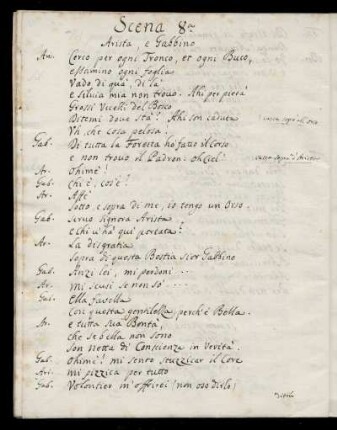 Scena 8.a
Arista, e Gabbino
Ar. Corro per ogni Tronco, et ogni Buco,
esamino ogni foglia
Vado di quà, di là
e Silvia mia non trovo. Ahi per pietà
Grossi Vccelli del Bosco
Ditemi dove stà? Ahi son caduta
Vh, che Cosa pelosa!
Gab. Di tutta la Foresta hò fatto il Corso
e non trovo il Padron: oh Ciel!
Ar. Ohimè!
Gab. Chi è, cos'è?
Ar. Affè
Sotto, e sopra di me, io tengo un Orso.
Gab. Servo Signora Arista
e chi v'hà qui portata?
Ar. La disgratia
Sopra di questa Bestia Sior Gabbino
Gab. Anzi lei, mi perdoni
Ar. mi scusi se non sò
Gab. Ella favella
Con questa gentilezza perch'è Bella.
Ar. e tutta sua Bontà,
che se bella non sono
Son netta di Conscienza in verità.
Gab. Ohimè! mi sento stuzzicar il Core
Ari. mi pizzica per tutto
Gab. Volontier m'offrirei (non oso dirlo)